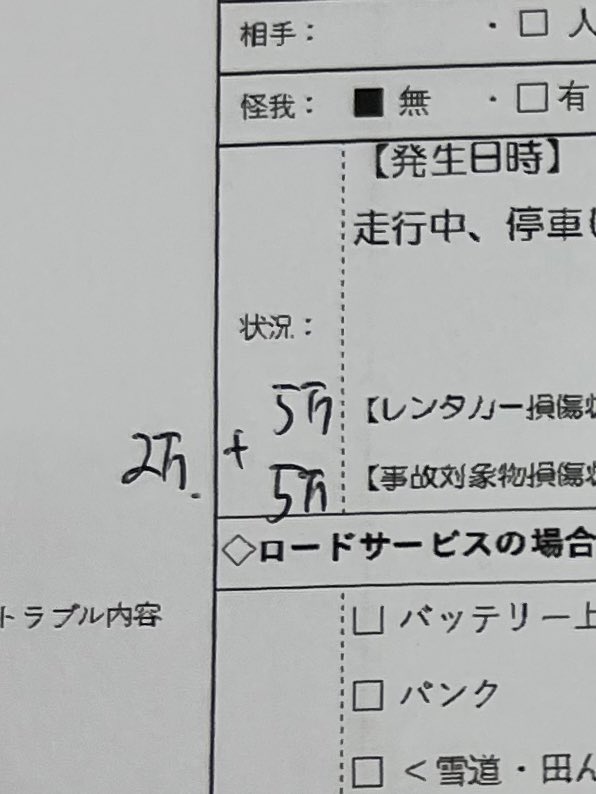 相手： ・□ 人
怪我： ■ 無 ・□ 有
【発生日時】
走行中、停車
状況：
5万 【レンタカー損傷状
2万. +
5万 【事故対象物損傷状
◇ロードサービスの場合
トラブル内容 □ バッテリー上
□ パンク
□ <雪道・田ん